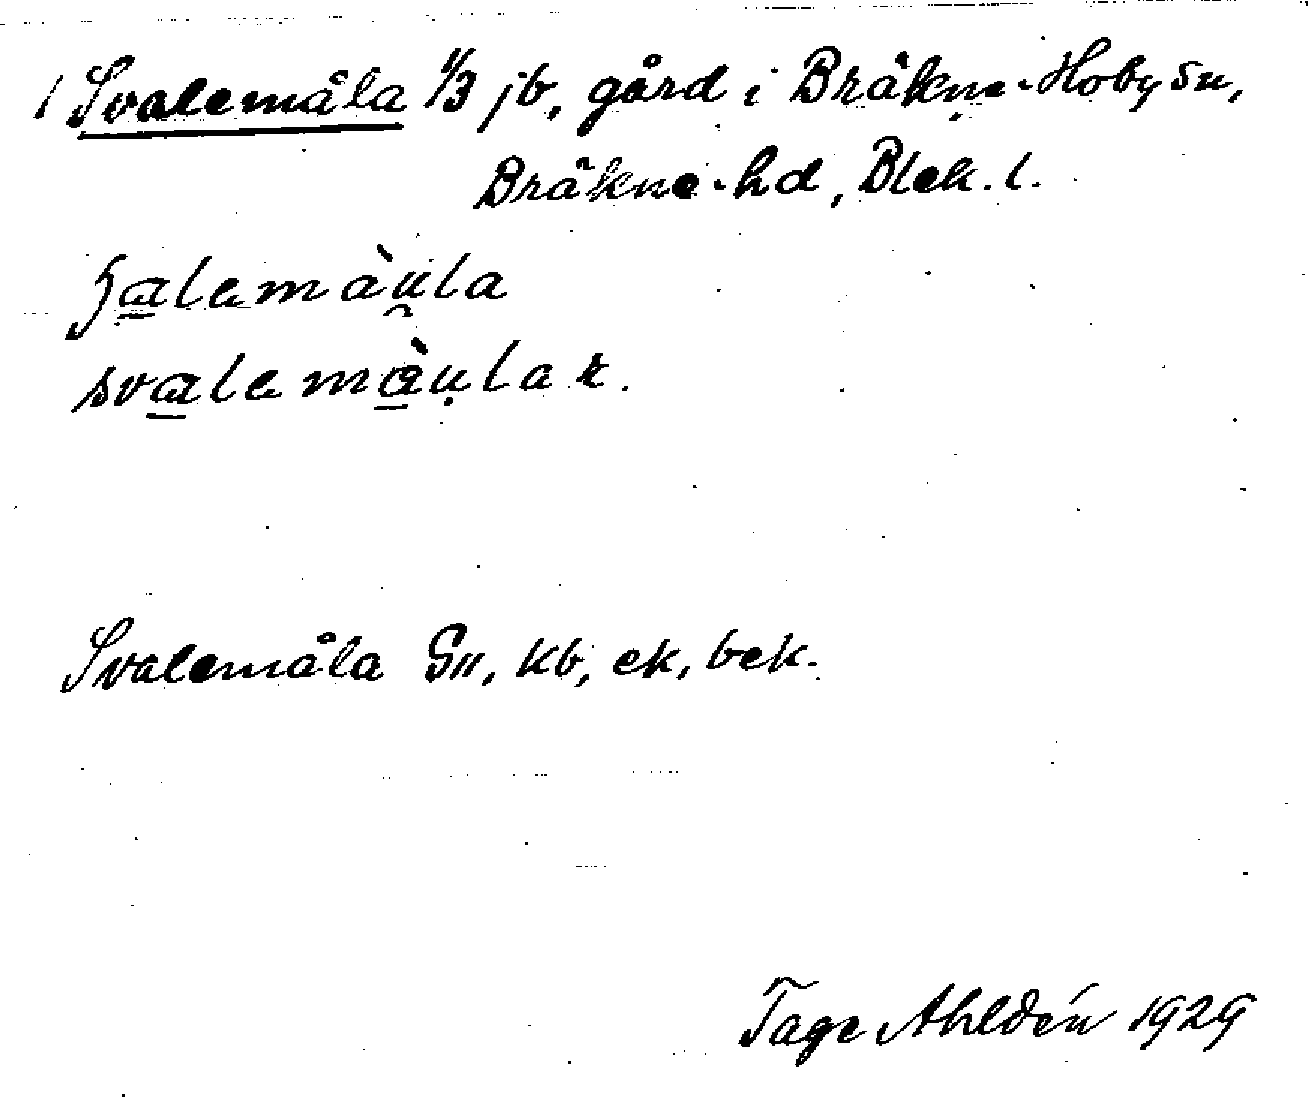 1 Svalemåla 1/3 jb, gård i Bräkne-Hoby sn,
Bräkne-hd, Blek. l.
svalemàu̯lar.
Svalemåla Gu, kb, ek, bek.
Tage Ahldén 1929